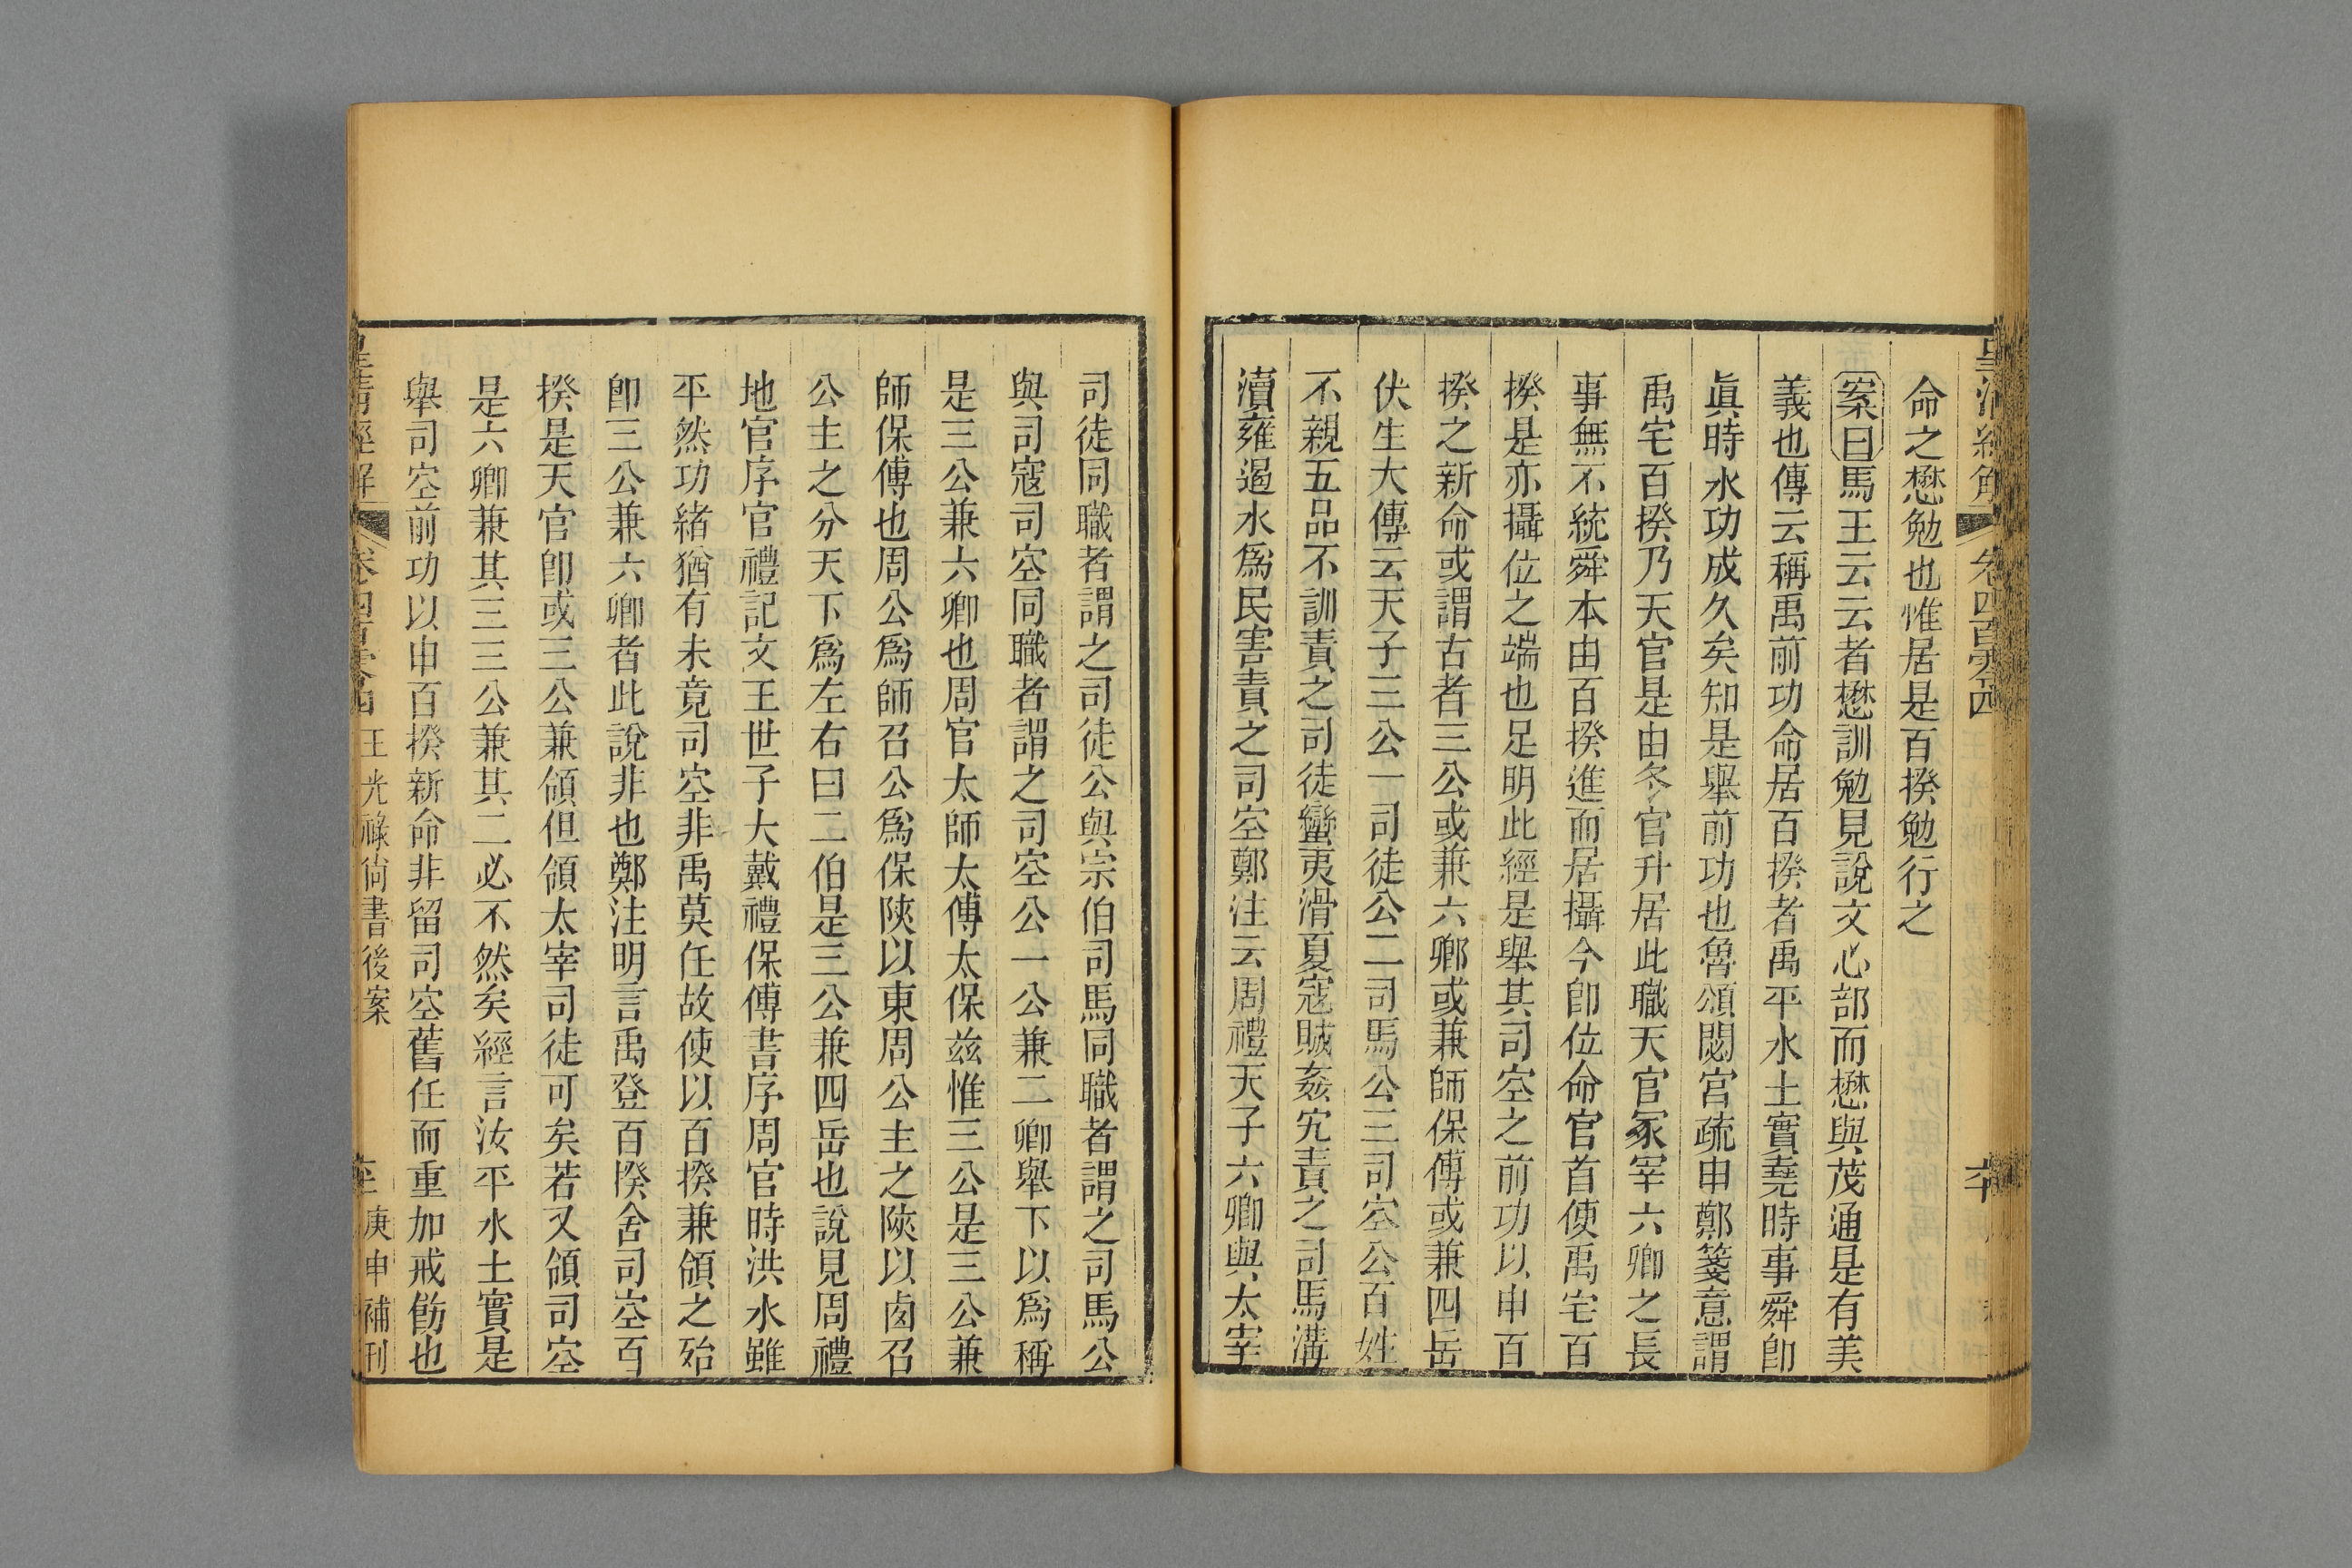 皇清經解 卷四百零四
命之懋勉也惟居是百揆勉行之
案曰馬王云云者懋訓勉見說文心部而懋與茂通是有美
義也傳云稱禹前功命居百揆者禹平水土實堯時事舜卽
眞時水功成久矣知是舉前功也魯頌閟宮疏申鄭箋意謂
禹宅百揆乃天官是由冬官升居此職天官冢宰六卿之長
事無不統舜本由百揆進而居攝今卽位命官首使禹宅百
揆是亦攝位之端也足明此經是舉其司空之前功以申百
揆之新命或謂古者三公或兼六鄉或兼師保傅或兼四岳
伏生大傳云天子三公一司徒公二司馬公三司空公百姓
不親五品不訓責之司徒蠻夷滑夏寇賊姦宄責之司馬溝
瀆雍遏水爲民害責之司空鄭注云周禮天子六卿與太宰
司徒同職者謂之司徒公與宗伯司馬同職者謂之司馬公
與司寇司空同職者謂之司空公一公兼二卿舉下以爲稱
是三公兼六卿也周官太師太傅太保兹惟三公是三公兼
師保傅也周公爲師召公爲保陝以東周公主之陝以卤召
公主之分天下爲左右曰二伯是三公兼四岳也說見周禮
地官序官禮記文王世子大戴禮保傅書序周官時洪水雖
平然功緒猶有未竟司空非禹莫任故使以百揆兼領之殆
卽三公兼六卿者此說非也鄭注明言禹登百揆舍司空百
揆是天官卽或三公兼領但領太宰司徒可矣若又領司空
是六卿兼其三三公兼其二必不然矣經言汝平水土實是
舉司空前功以申百揆新命非留司空舊任而重加戒飭也
皇清經解 卷四百零四 王光祿尙書後案 庚申補刊